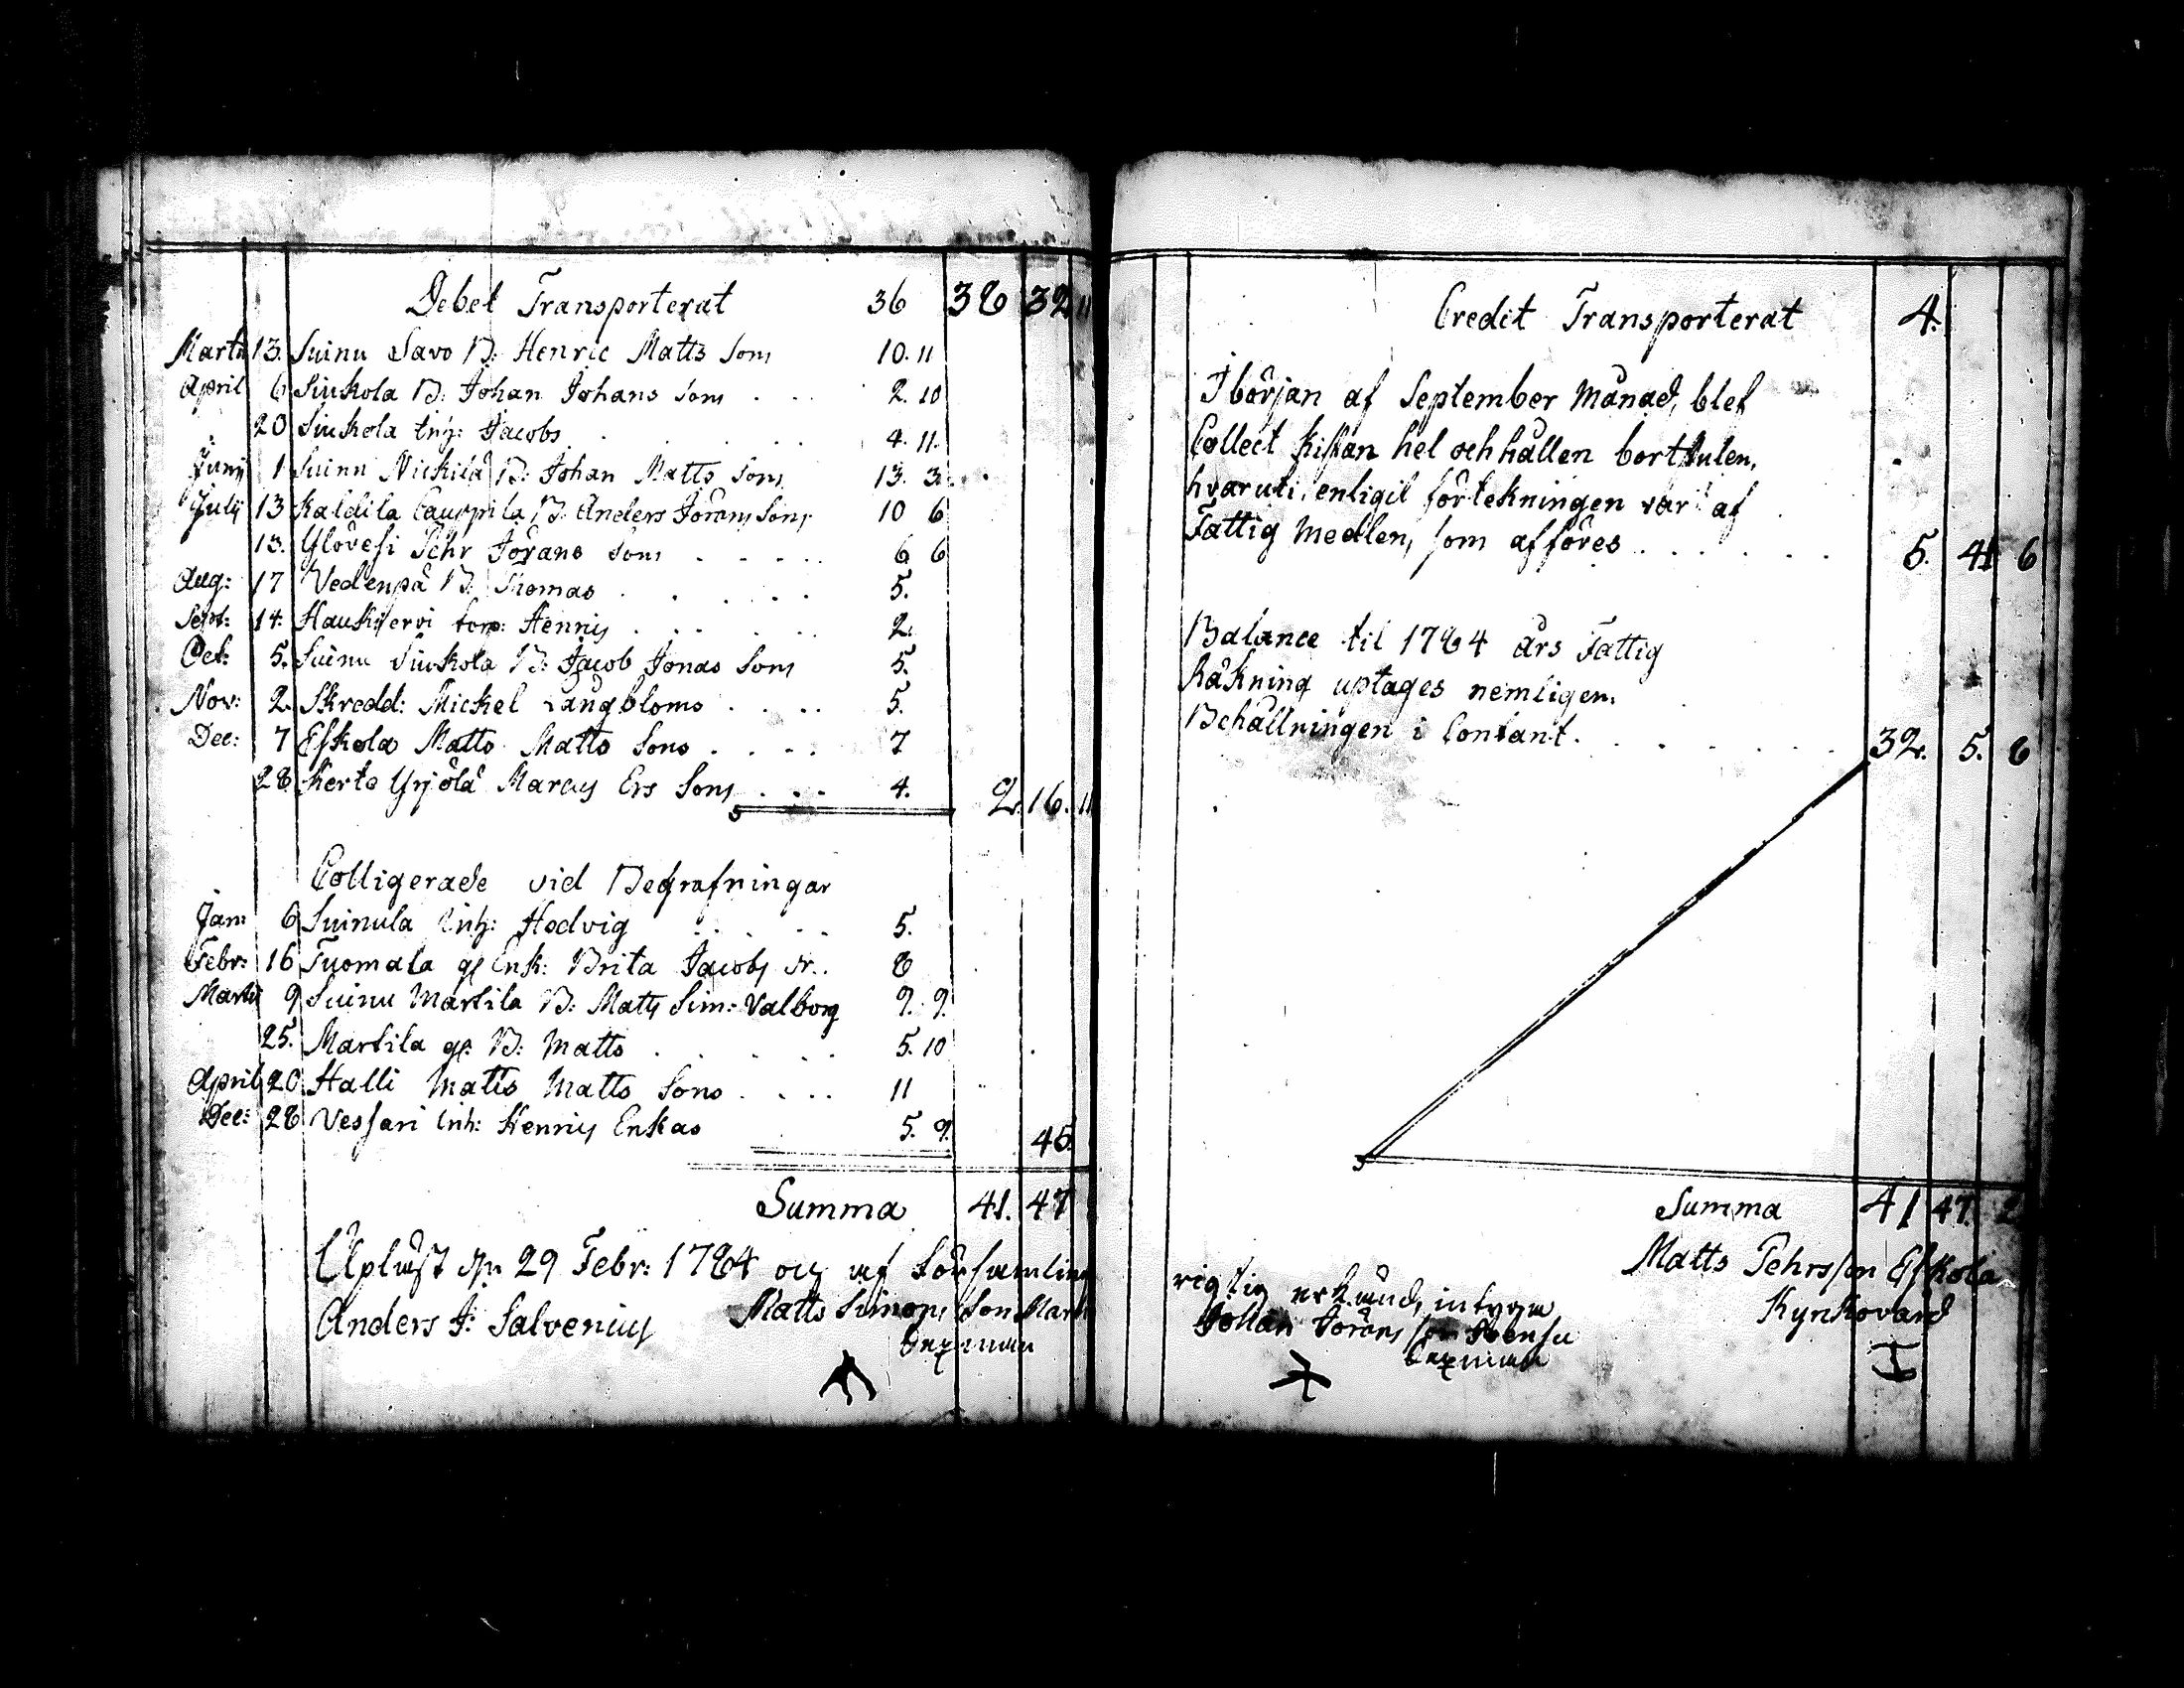 Debet Transporterat 36 38 32 11
Martii 13. Suinu Savo B: Henric Matts Sons 10. 11
April 6 Siukola B: Johan Johans Sons . . . 2. 10
20 Siukola inh: Jacobs . . . . 4. 11.
Junij 1 Suinu Nickilä B: Johan Matts Sons 13. 3.
Julij 13 Kaldila Caupila B. Anders Jörans Sons 10 6
13. Ylövesi Pehr Jörans Sons . . . . . 6 6
Aug: 17 Vedenpä B: Thomas . . . . . 5.
Sept: 14. Haukijervi torp: Henrics . . . . . 2.
Oct: 5. Suinu Siukola B: Jacob Jonas Sons 5.
Nov: 2. Skredd: Mickel Långbloms . . . . 5.
Dec: 7 Eskola Matts Matts Sons . . . . 7
28 Kerte Yrjölä Marcus Ers Sons . . . 4. 2. 16. 11
Colligerade vid Begrafningar
Jan: 6 Suinula inh: Hedvig . . . . 5.
Febr: 16 Tuomala gl Enk: Brita Jacobs dr. . 8
Martii 9 Suinu Martila B: Matts Sim: Valborg 9. 9.
25. Martila gl: B: Matts . . . . . 5. 10
April 20 Halli Matts Matts Sons . . . . 11
Dec: 28 Vessari inh: Henrics Enkas 5. 9. 45.
Summa 41. 47
Uplæst d. 29 Febr: 1784 och af Församling
Anders J: Salvenius Matts Simons Son Mart
Sexman
Credit Transporterat 4.
I början af September Månad, blef
Collect Kistan hel och hållen bortstulen,
hvaruti enligit förtekningen var af
Fattig Medlen, som afföres . . . . . . 5. 41 6
Balance til 1784 års Fattig
Räkning uptages nemligen.
Behållningen i Contant . . . . . . . 32. 5. 8
Summa 41 47. 2
rigtig erkänd, intyga Matts Pehrsson Eskola
Johan Jörans son Kyrkovärd
Sexman